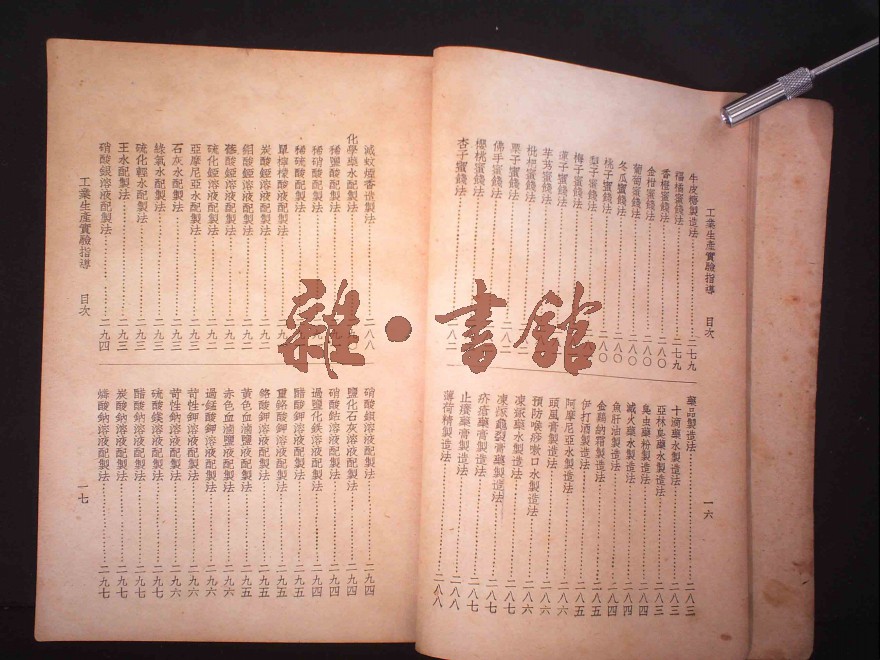 工業生產實驗指導　目次　一六
牛皮糖製造法 二七九
福橘蜜餞法 二七九
香橙蜜餞法 二八〇
金柑蜜餞法 二八〇
葡萄蜜餞法 二八〇
冬瓜蜜餞法 二八〇
桃子蜜餞法 八〇
梨子蜜餞法
梅子蜜餞法
蓮子蜜餞法
芋艿蜜餞法
枇杷蜜餞法
栗子蜜餞法
佛手蜜餞法
櫻桃蜜餞法
杏子蜜餞法 二八二
藥品製造法 二八三
十滴藥水製造法 二八三
亞林臭藥水製造法 二八三
臭虫藥粉製造法 二八四
滅火藥水製造法 二八四
魚肝油製造法 二八四
金雞納霜製造法 二八五
伊打酒製造法 二八五
阿摩尼亞水製造法 二八六
頭風膏製造法 二八六
預防喉痧嗽口水製造法 二八六
凍瘃藥水製造法 二八七
凍瘃龜裂膏藥製造法 二八七
疥瘡藥膏製造法 二八七
止癢藥膏製造法 二八八
薄荷精製造法 二八八
滅蚊煙香造製法 二八八
化學藥水配製法
稀鹽酸配製法
稀硝酸配製法
稀硫酸配製法
單檸檬酸液配製法
炭酸錏溶液配製法 二九一
鉬酸錏溶液配製法 二九一
蓚酸錏溶液配製法 二九一
硫化錏溶液配製法 二九二
亞摩尼亞水配製法 二九二
石灰水配製法 二九二
綠氣水配製法 二九三
硫化輕水配製法 二九三
王水配製法 二九三
硝酸銀溶液配製法 二九四
硝酸鋇溶液配製法 二九四
鹽化石灰溶液配製法 二九四
硝酸鈷溶液配製法 二九四
過鹽化鉄溶液配製法 二九四
醋酸鉀溶液配製法 二九五
重鉻酸鉀溶液配製法 二九五
鉻酸鉀溶液配製法 二九五
黃色血滷鹽液配製法 二九五
赤色血滷鹽液配製法 二九六
過錳酸鉀溶液配製法 二九六
苛性鉀溶液配製法 二九六
苛性鈉溶液配製法 二九六
硫酸鎂溶液配製法 二九七
醋酸鈉溶液配製法 二九七
炭酸鈉溶液配製法 二九七
燐酸鈉溶液配製法 二九七
工業生產實驗指導　目次　一七
雜·書館